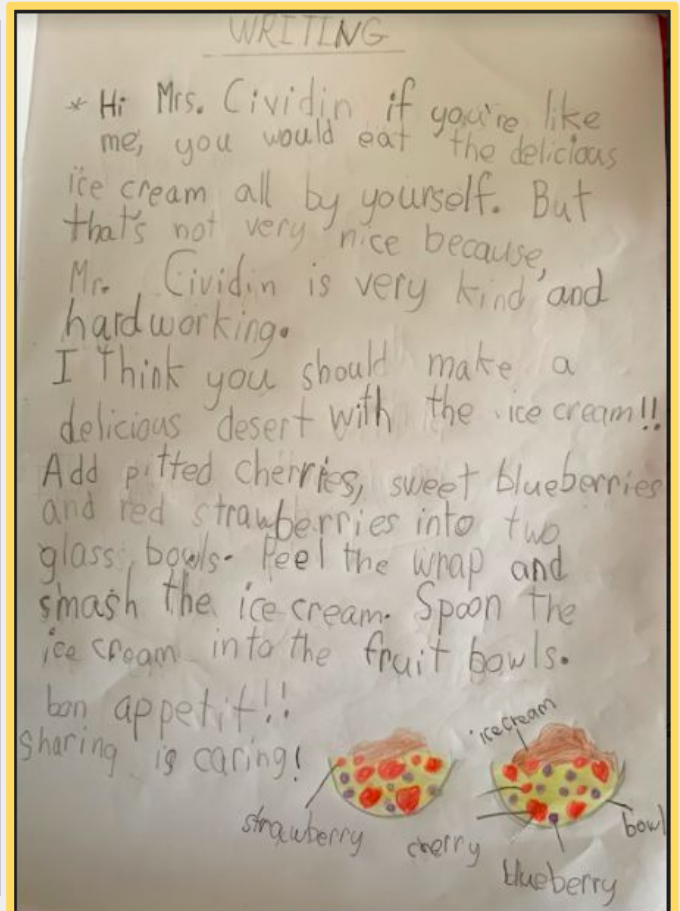 WRITING
* Hi Mrs. Cividin if you're like
me, you would eat the delicious
ice cream all by yourself. But
that's not very nice because,
Mr. Cividin is very kind and
hardworking.
I think you should make a
delicious desert with the ice cream!!
Add pitted cherries, sweet blueberries
and red strawberries into two
glass bowls. Peel the wrap and
smash the ice cream. Spoon the
ice cream into the fruit bowls.
bon appetit!!
Sharing is caring!
icecream
strawberry
cherry
blueberry
bowl